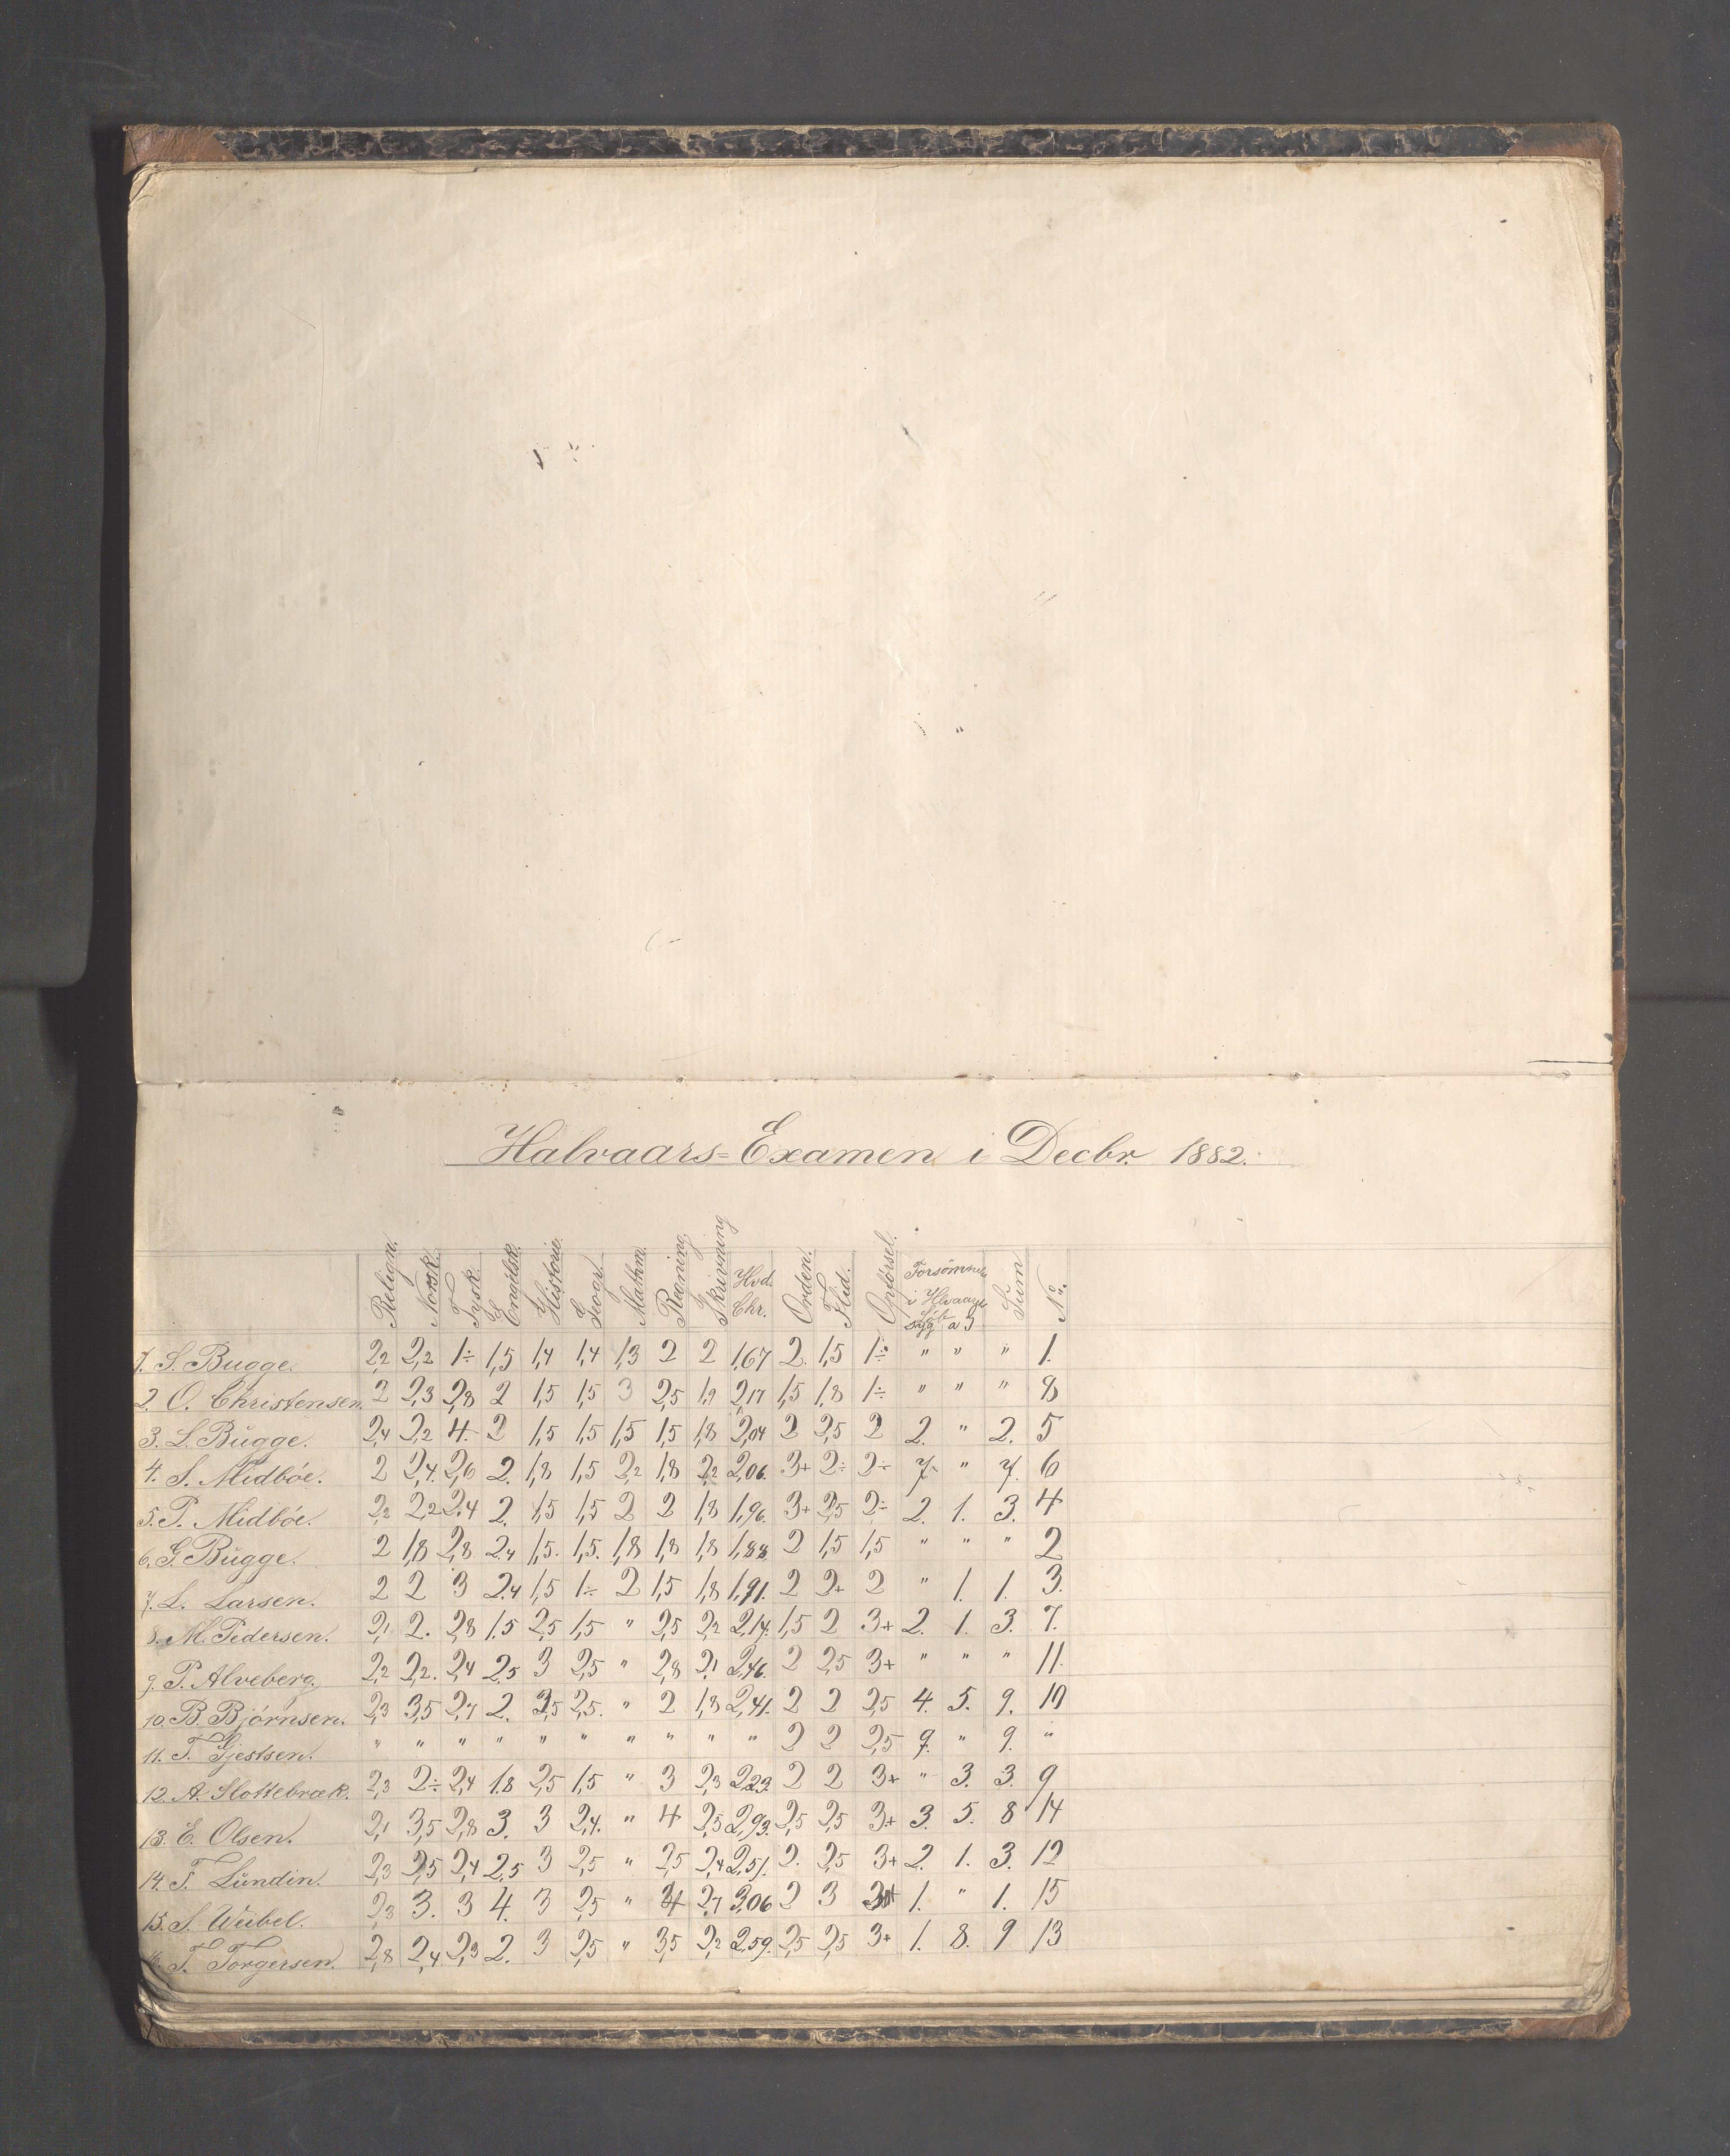 Halvaars-Examen i Decbr. 1882.
Relign. Norsk. Tysk. Engelsk. Historie. Geogr. Mathm. Regning Skrivning Hvd. Chr. Orden. Flid. Opførsel. Forsømmels i Hlvaarets Løb syg a J Sum No.
1. S. Bugge. 2,2 2,2 1÷ 1,5 1,4 1,4 1,3 2 2 1,67 2. 1,5 1÷ " " " 1.
2. O. Christensen. 2 2,3 2,8 2 1,5 1,5 3 2,5 1,9 2,17 1,5 1,8 1÷ " " " 8
3. L. Bügge. 2,4 2,2 4. 2 1,5 1,5 1,5 1,5 1,8 2,04 2 2,5 2 2. " 2. 5
4. S. Midbøe. 2 2,4. 2,6 2. 1,8 1,5 2,2 1,8 2,2 2,06. 3+ 2÷ 2÷ 7. " 7. 6
5. P. Midbøe. 2,2 2,2 2,4 2. 1,5 1,5 2 2 1,8 1,96. 3+ 2,5 2÷ 2. 1. 3. 4
6. G. Bügge. 2 1,8 2,8 2,4 1,5. 1,5. 1,8 1,8 1,8 1,88 2 1,5 1,5 " " " 2
7. L. Larsen. 2 2 3 2,4 1,5 1÷ 2 1,5 1,8 1,91. 2 2+ 2 " 1. 1. 3.
8. M. Pedersen. 2,1 2. 2,8 1,5 2,5 1,5 " 2,5 2,2 2,14. 1,5 2 3+ 2. 1. 3. 7.
9. P. Alveberg. 2,2 2,2. 2,4 2,5 3 2,5 " 2,8 2,1 2,46. 2 2,5 3+ " " " 11.
10. B. Bjørnsen. 2,3 3,5 2,7 2. 2,5 2,5. " 2 1,8 2,41. 2 2 2,5 4. 5. 9. 10
11. T. Gjestsen. " " " " " " " " " " 2 2 2,5 9. " 9. "
12. A. Slottebræk. 2,3 2÷ 2,4 1,8 2,5 1,5 " 3 2,3 2,23. 2 2 3+ " 3. 3. 9
13. E. Olsen. 2,1 3,5 2,8 3. 3 2,4. " 4 2,5 2,93. 2,5 2,5 3+ 3. 5. 8 14
14. T. Lündin. 2,3 2,5 2,4 2,5 3 2,5 " 2,5 2,4 2,51. 2. 2,5 3+ 2. 1. 3. 12
15. S. Weibel. 2,3 3. 3 4. 3 2,5 " 4 2,7 3,06 2 3 1. " 1. 15
16. T. Torgersen. 2,8 2,4 2,3 2. 3 2,5 " 3,5 2,2 2,59. 2,5 2,5 3+ 1. 8. 9 13